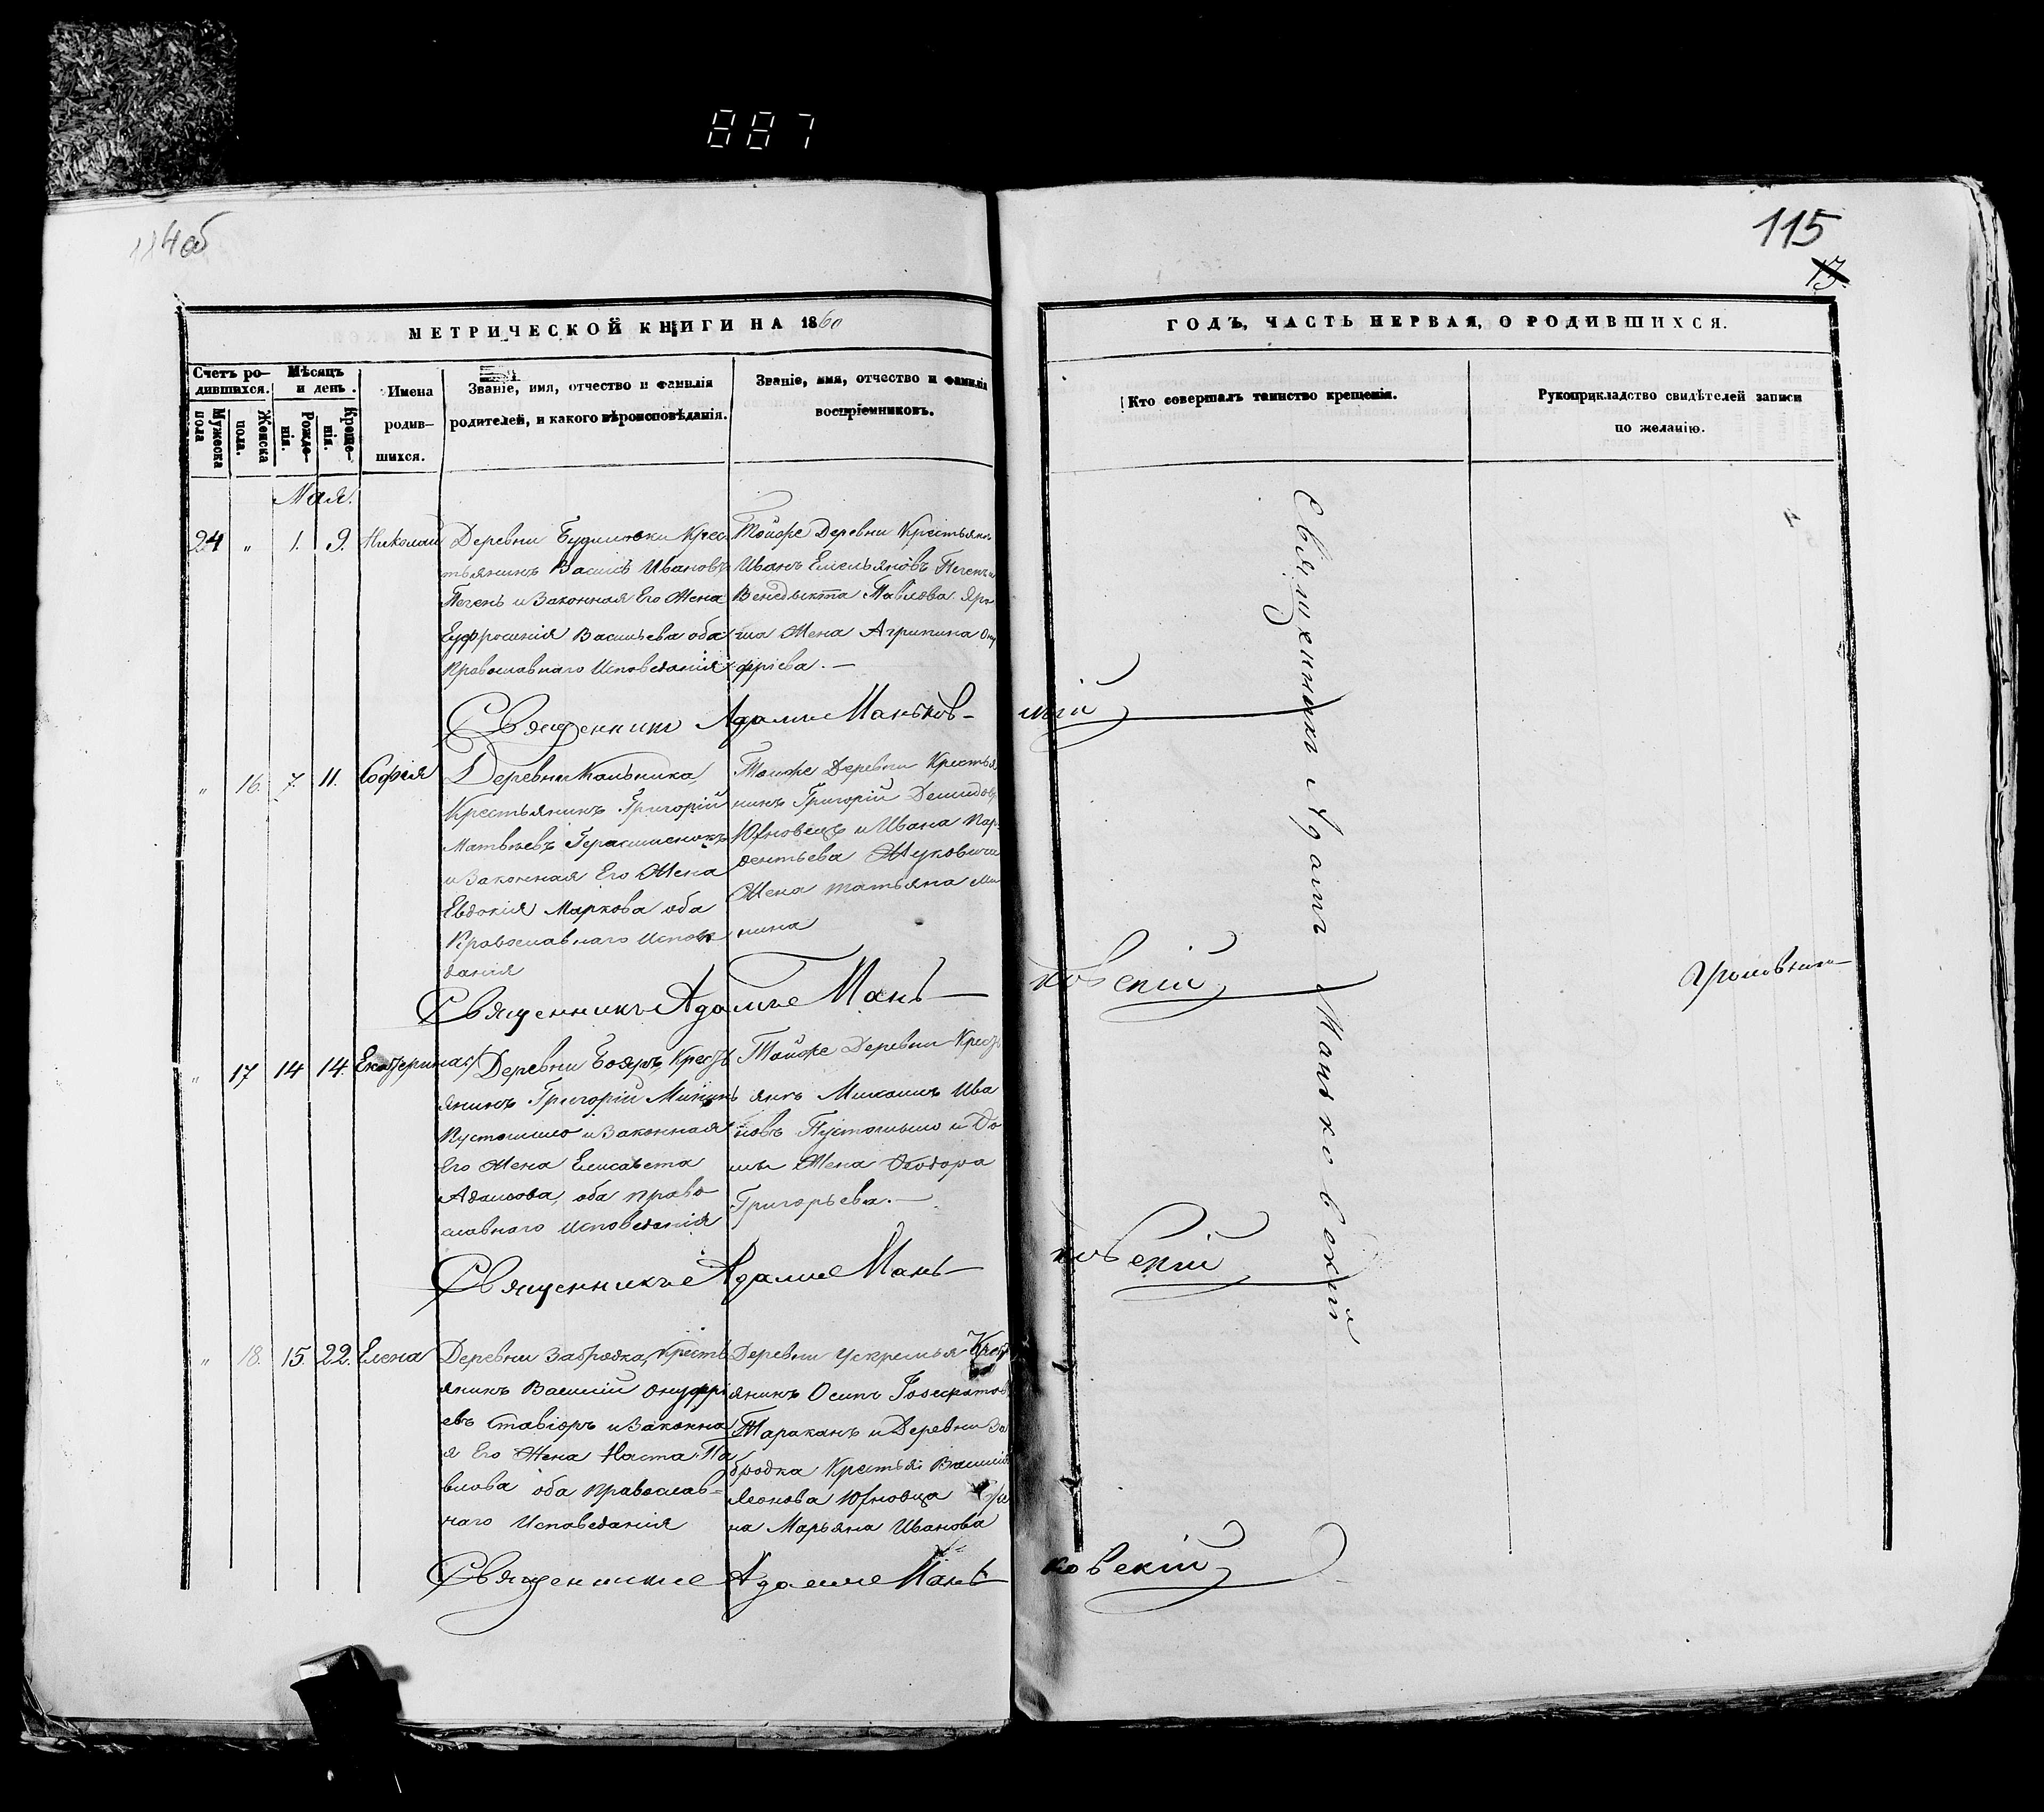 887
114об
115
13.
МЕТРИЧЕСКОЙ КНИГИ НА 1860
ГОДЪ, ЧАСТЬ ПЕРВАЯ, О РОДИВШИХСЯ.
Счетъ ро-
дившихся.
Мужеска
пола
Женска
пола.
Мѣсяцъ
и день.
Рожде-
нія.
Креще-
нія.
Имена
родив-
шихся.
Званіе, имя, отчество и фамилія
родителей, и какого вѣроисповѣданія.
Званіе, имя, отчество и фамилія
воспріемниковъ.
Кто совершалъ таинство крещенія.
Рукоприкладство свидѣтелей записи
по желанію.
Мая.
24 " 1. 9. Николай
Деревни Будиловки Крес
тьянинъ Василъ Ивановъ
Печень и Законная Его Жена
Ефросинія Васильева оба
Православнаго Исповеданія
Тойже Деревни Крестьянъ
Иванъ Емельяновъ Печень и
Венедыкта Павлова
ша Жена Агрипина Ону
фріева. —
Священникъ Адамъ Маньков-
скій
" 16. 7. 11. Софія
Деревни Кольника,
Крестьянинъ Григорій
Матвѣевъ Герасименокъ
и Законная Его Жена
Евдокія Маркова оба
Православнаго Испове
данія
Тойже Деревни Крестья
нинъ Григорій Демидовъ
Юхновецъ и Ивана Пар
фентьева Жуковича
Жена татьяна Ми
нина
Священникъ Адамъ Мань-
ковскій
" 17 14 14. Екатерина
Деревни Бояръ, Кресть
янинъ Григорій Мининъ
Пустошило и Законная
Его Жена Елисавета
Адамова, оба право
славнаго Исповеданія
Тойже Деревни Кресть
янъ Михаилъ Ива
новъ Пустошило и Фо
мы Жена Феодора
Григорьева. —
Священникъ Адамъ Мань-
ковскій
" 18. 15. 22. Елена
Деревни Забродка, Кресть
янинъ Василій Онуфрі
евъ Ставіоръ и Законна
я Его Жена Наста Па
влова оба Православ-
наго Исповеданія
Деревни Ускремья Крест
янинъ Осипъ
Тараканъ и Деревни За
бродка Крестья Василія
Леонова Юхновца
на Марьяна Иванова
Священникъ Адамъ Мань-
ковскій
Священникъ Адамъ Маньковскій